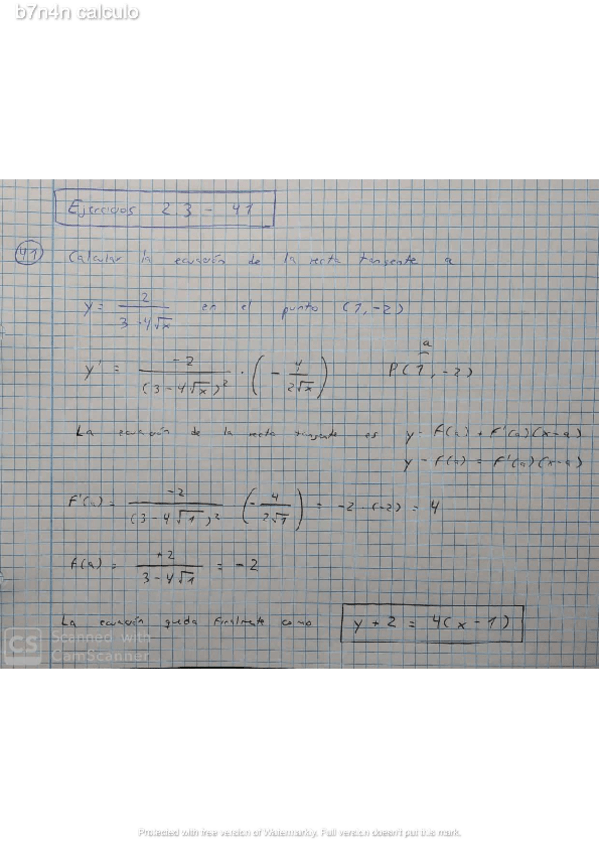 b7n4n calculo
Ejercicios 2.3 - 41
41 Calcular la ecuación de la recta tangente a
y = 2 / (3 - 4√x) en el punto (1, -2)
y' = -2 / (3 - 4√x)² · (- 4 / 2√x) P(1, -2) a
La ecuación de la recta tangente es y = f(a) + f'(a)(x-a)
y - f(a) = f'(a)(x-a)
f'(a) = -2 / (3 - 4√1)² (- 4 / 2√1) = -2 · (-2) = 4
f(a) = +2 / (3 - 4√1) = -2
La ecuación queda finalmente como y + 2 = 4(x - 1)
CS Scanned with
CamScanner
Protected with free version of Watermarkly. Full version doesn't put this mark.